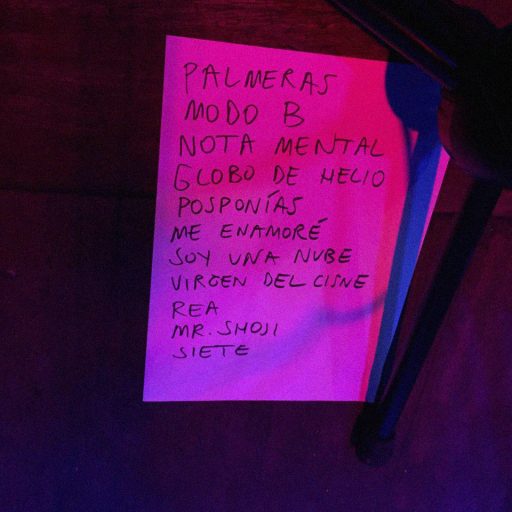 PALMERAS
MODO B
NOTA MENTAL
GLOBO DE HELIO
POSPONÍAS
ME ENAMORÉ
SOY UNA NUBE
VIRGEN DEL CISNE
REA
MR. SHOJI
SIETE